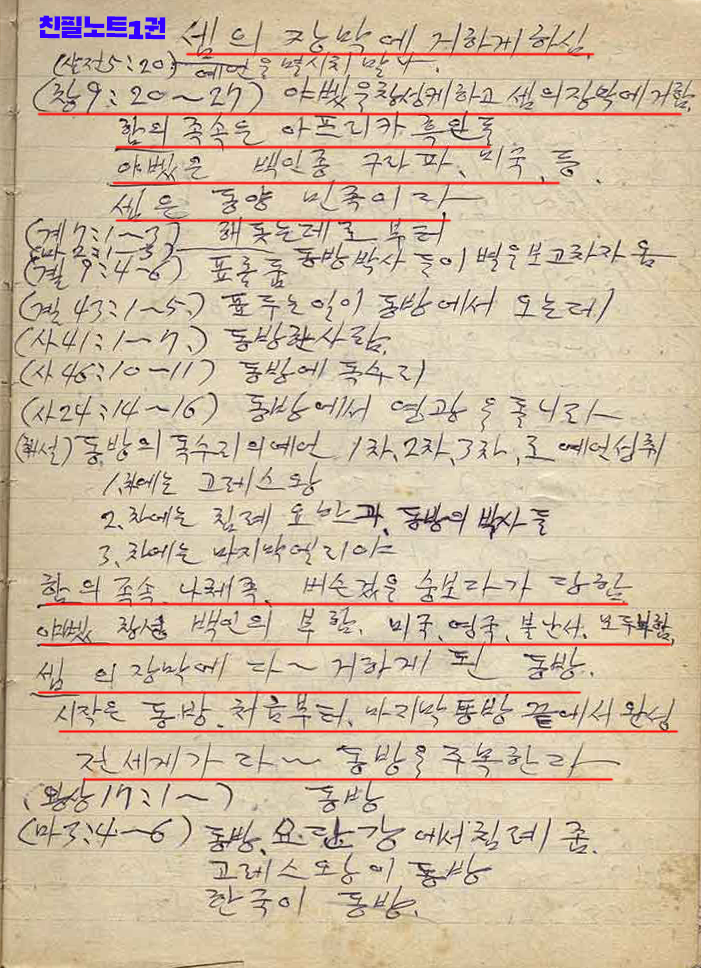 친필노트1권
셈의 장막에 거하게하심.
(살전5:20) 예언을 멸시치 말나.
(창9:20~27) 야벳을창성케하고 셈의장막에거함.
함의 족속은 아프리카 흑인들
야벳은 백인종 구라파, 미국, 등.
셈은 동양 민족이라
(계7:1~3) 해돋는데로 부터
(마2:1~3) 동방박사 들이 별을보고찾자 옴
(겔 9:4~6) 표를 줌
(겔 43:1~5.) 표주는일이 동방에서 오는데
(사41:1~7.) 동방한사람.
(사46:10~11) 동방에 독수리
(사24:14~16) 동방에서 영광을 돌니라
(해설) 동방의 독수리의예언 1차, 2차, 3차, 로 예언성취
1.차에는 고레스왕
2.차에는 침례 요한과, 동방의 박사들
3.차에는 마지막엘리야
함의 족속, 나체족, 버슨것을 숭보다가 당함
야벳 창성 백인의 부함. 미국, 영국, 불난서, 모두부함.
셈의장막에 다~ 거하게 된 동방.
시작은 동방, 처음부터, 마지막 동방 끝에서 완성
전세게가 다~ 동방을 주목한라
(왕상17:1~7 동방
(마3:4~6) 동방, 요단강에서침례줌.
고레스왕이 동방
한국이 동방.